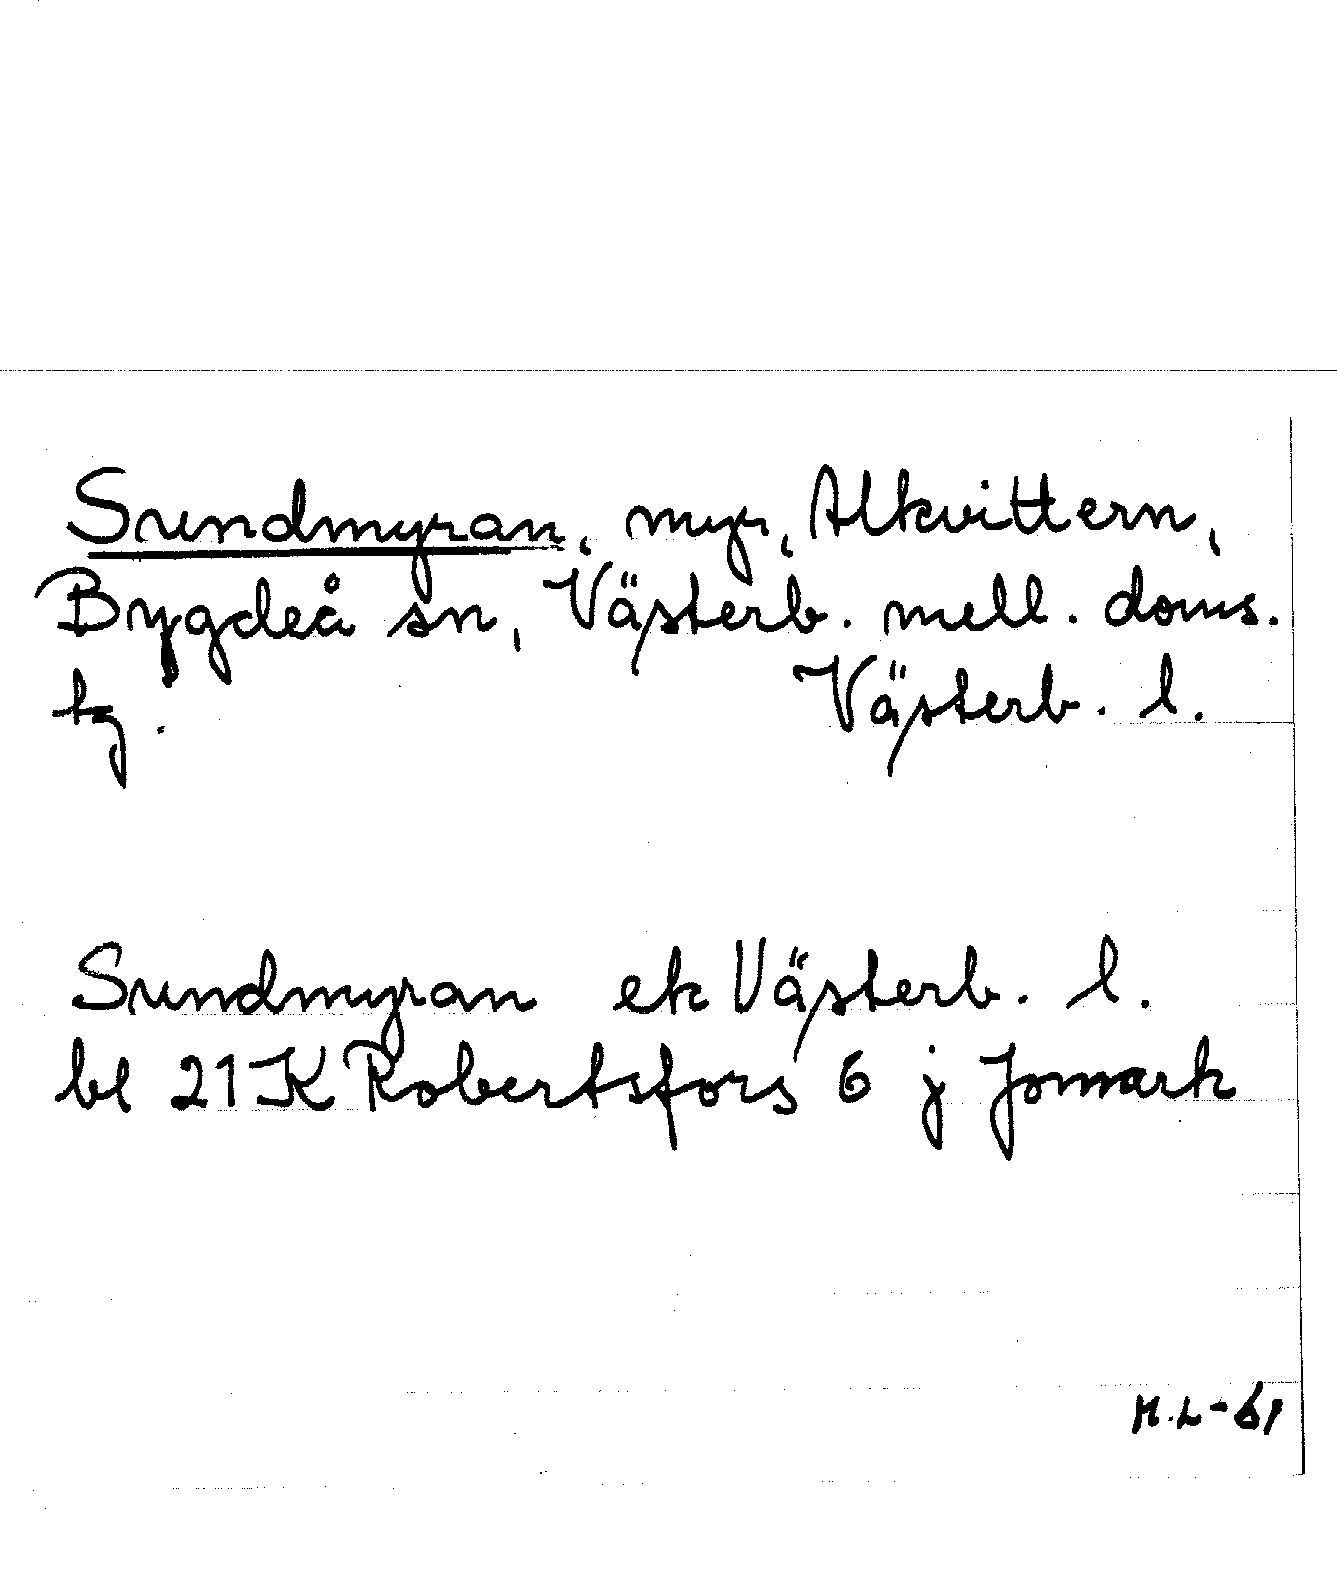 Sundmyran, myr, Alkvittern,
Bygdeå sn, Västerb. mell. doms.
tg. Västerb. l.
Sundmyran ek Västerb. l.
bl 21 K Robertsfors 6 j Jomark
H.L-61